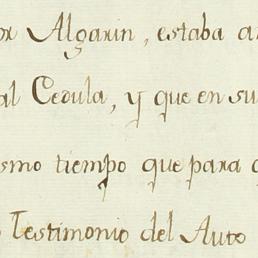 or Algarin, estaba a
al Cedula, y que en su
ismo tiempo que para
Testimonio del Auto